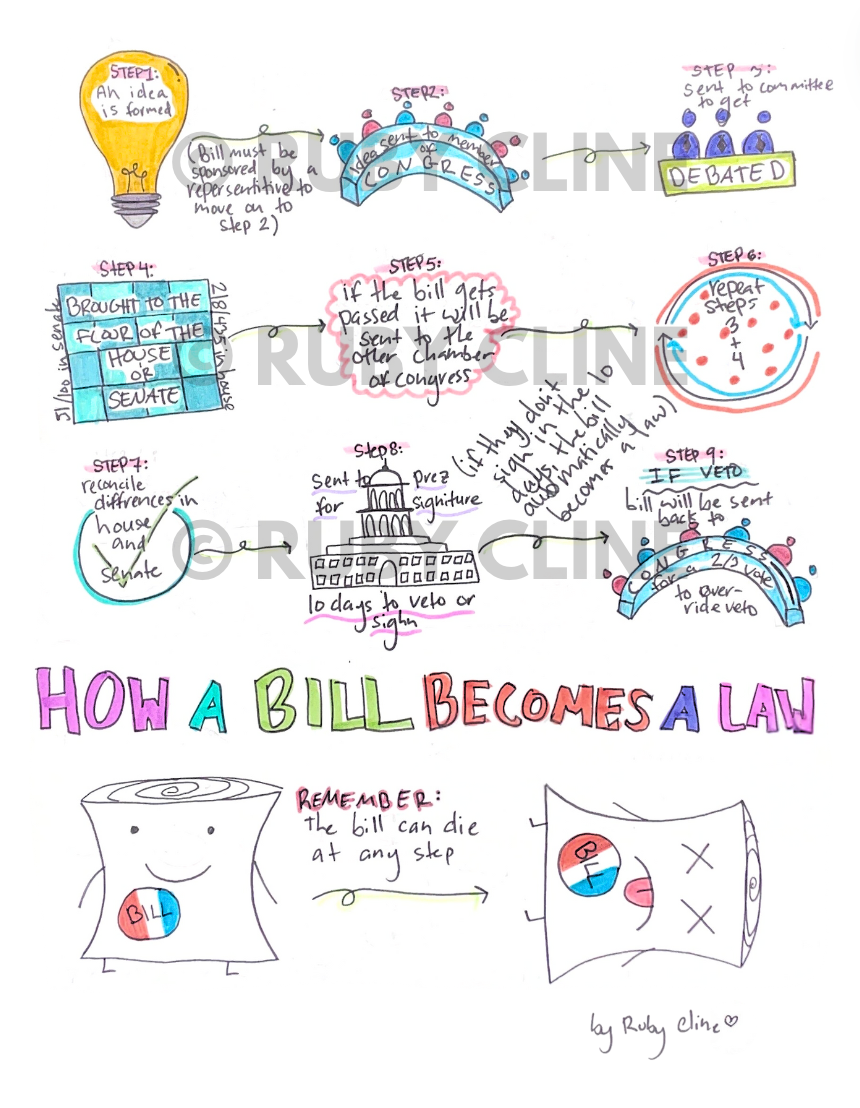 STEP 1:
An idea
is formed
(Bill must be
sponsored by a
repersentitive to
move on to
step 2)
STEP 2:
Idea sent to member
of
CONGRESS
STEP 3:
sent to committee
to get
DEBATED
STEP 4:
51/100 in senate
BROUGHT TO THE
FLOUR OF THE
HOUSE
OR
SENATE
218/435 in house
STEP 5:
if the bill gets
passed it will be
sent to the
other chamber
of congress
STEP 6:
repeat
steps
3
+
4
STEP 7:
reconcile
diffrences in
house
and
senate
Step 8:
Sent to Prez
for signiture
10 days to veto or
sighn
(if they don't
sign in the 10
days, the bill
automatically
becomes a law)
STEP 9:
IF VETO
bill will be sent
back to
CONGRESS
for a 2/3 vote
to over-
ride veto
HOW A BILL BECOMES A LAW
REMEMBER:
the bill can die
at any step
BILL
BILL
by Ruby Cline
© RUBY CLINE
© RUBY CLINE
© RUBY CLINE